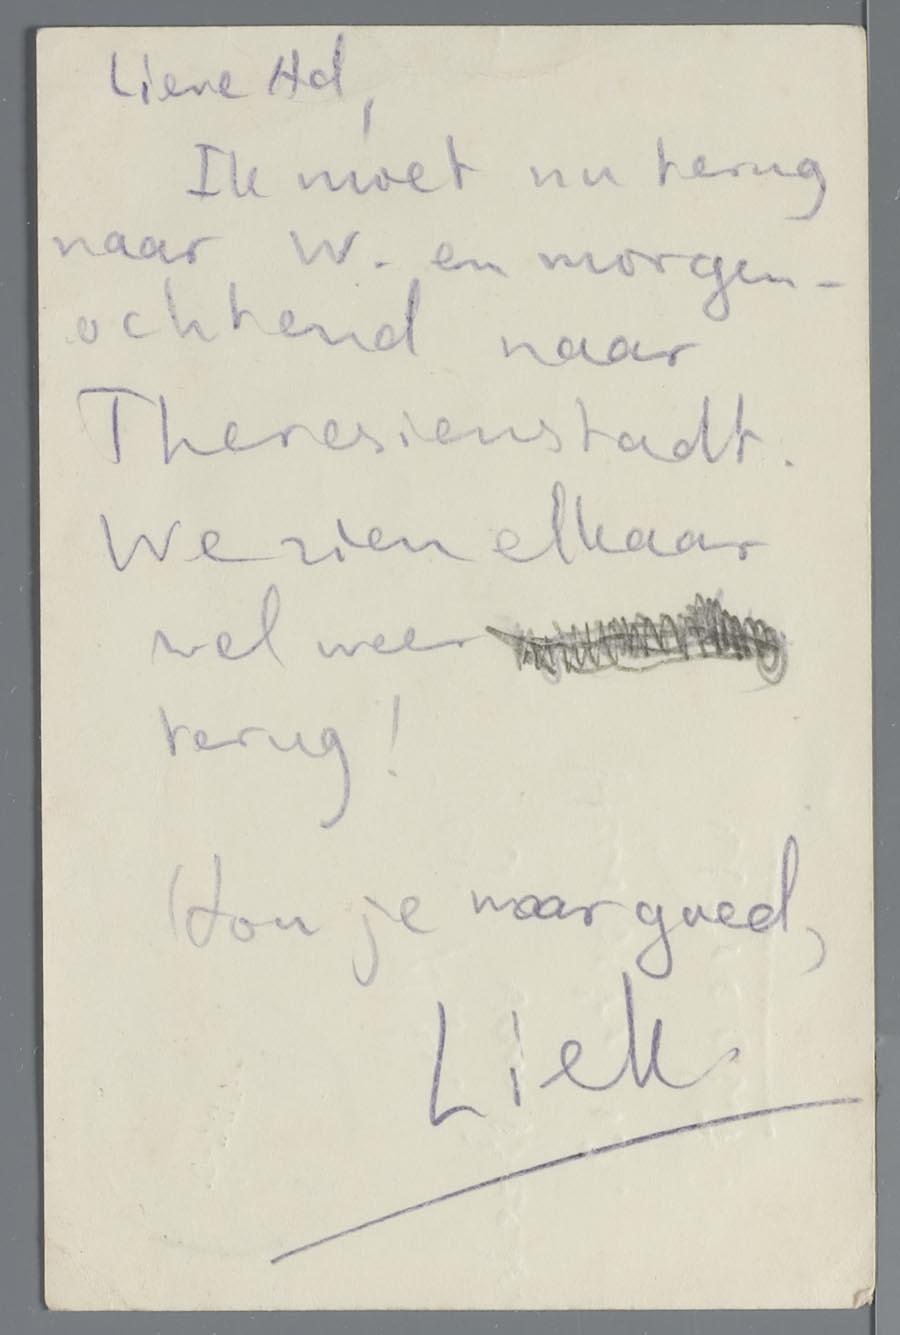 Lieve Ad,
Ik moet nu terug
naar W. en morgen-
ochtend naar
Theresienstadt.
We zien elkaar
wel weer
terug!
Hou je maar goed,
Liek